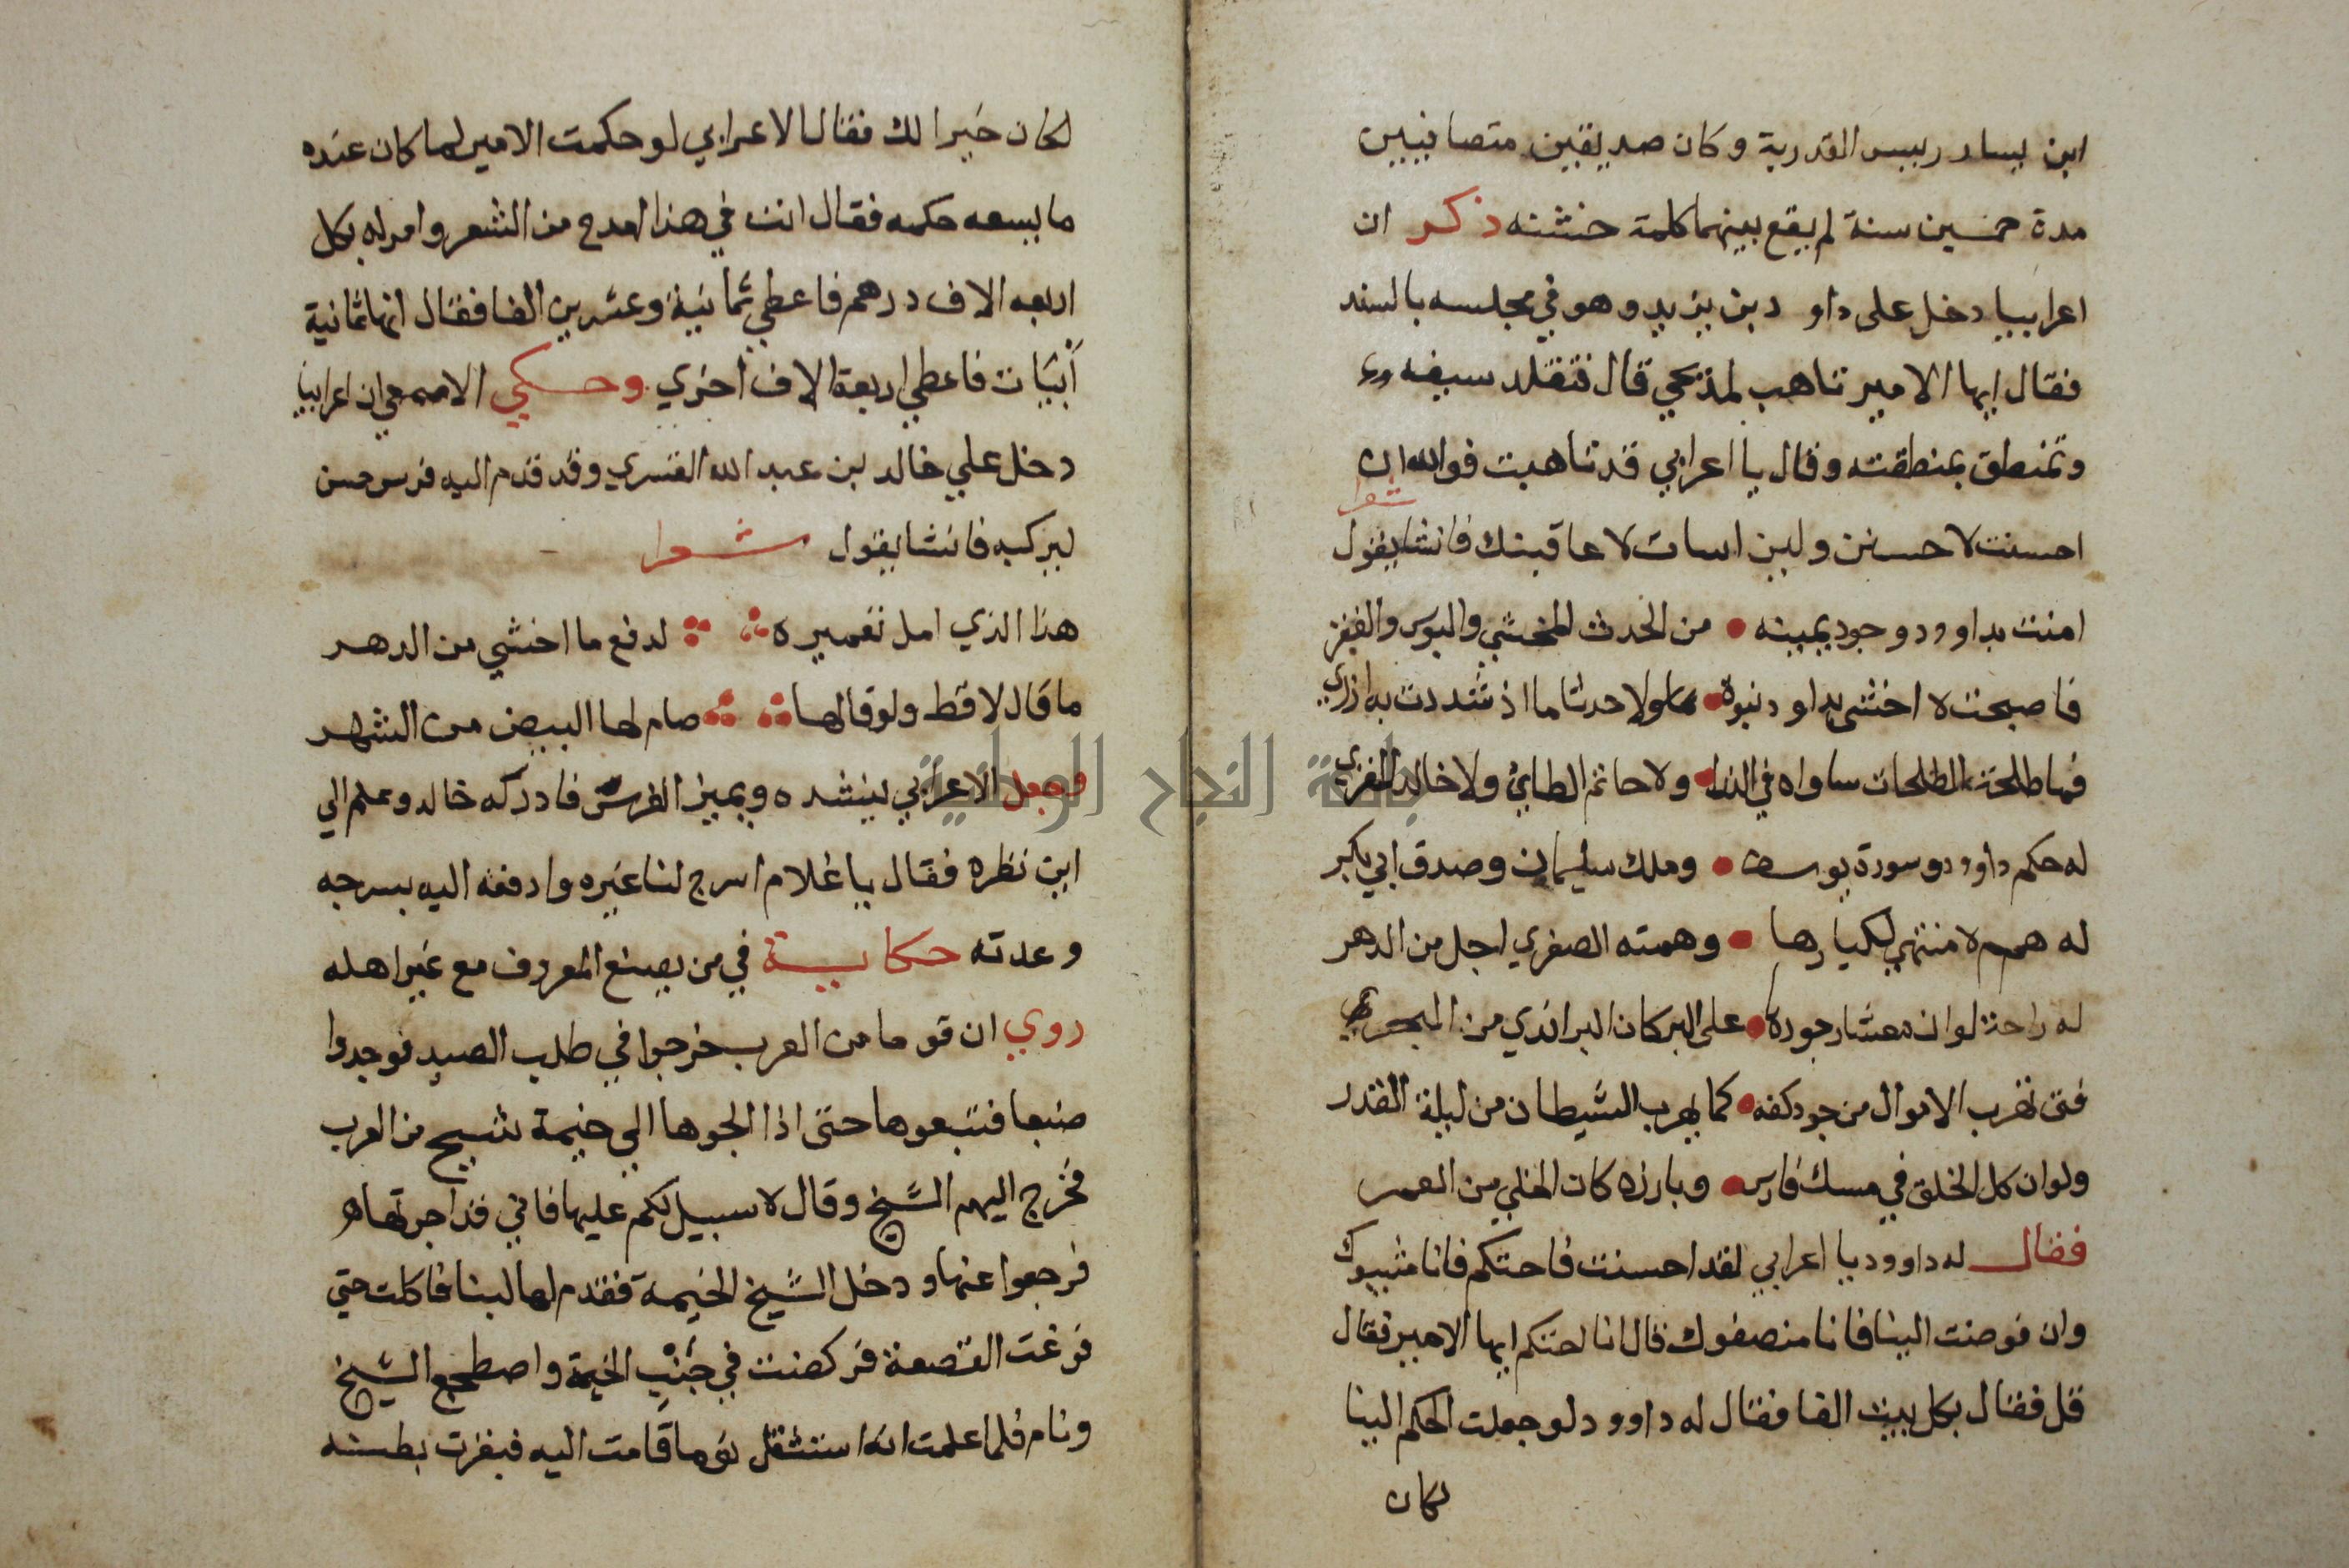 ابن يسار رييس القدرية وكان صديقين متصافيين
مدة خمسين سنة لم يقع بينهما كلمة خشنه ذكر ان
اعرابيا دخل على داود بن يزيد وهو في مجلسه بالسند
فقال ايها الامير تاهب لمذبحي قال فتقلد سيفه
وتمنطق بمنطقته وقال يا اعرابي قد تاهبت فوالله ان
شعرا
احسنت لاحسنن ولين اسات لاعاقبنك فانشا يقول
امنت بداوود وجود يمينه من الحدث المخشي والبوس والفقر
فاصبحت لا اخشى بداود نبوة ولا حدثاما اذ شددت به ازري
فما طلحة الطلحات ساواه في الندا ولا حاتم الطائي ولا خالد
له حكم داوود وسورة يوسف وملك سليمان وصدق ابي بكر
له همم لا منتهى لكبارها وهمته الصغري اجل من الدهر
له راحة لوان معشار جودها على البر كان البر اندي من البحر
فتى تهرب الاموال من جود كفه كما يهرب الشيطان من ليلة القدر
ولوان كل الخلق في مسك فارس وبارزه كان الخلي من العمر
فقال له داوود يا اعرابي لقد احسنت فاحتكم فانا مثيبوك
وان فوضت الينا فانا منصفوك قال انا احتكم ايها الامير فقال
قل فقال بكل بيت الفا فقال له داوود لو جعلت الحكم الينا
لكان
لكان خيرا لك فقال الاعرابي لو حكمت الامير لما كان عنده
ما يسعه حكمه فقال انت في هذا امدح من الشعر وامر له بكل
اربعه الاف درهم فاعطي ثمانية وعشرين الفا فقال انها ثمانية
أبيات فاعطي اربعة الاف اخري وحكي الاصمعي ان اعرابيا
دخل علي خالد بن عبد الله القسري وقد قدم اليه فرس حسن
ليركبه فانشا يقول شعرا
هذا الذي امل تعميره لدفع ما اخشي من الدهر
ما قال لا قط ولو قالها صام لها البيض من الشهر
وجعل الاعرابي ينشده ويميز الفرس فادركه خالد وعلم الي
اين نظره فقال يا غلام اسرج لنا غيره وادفعه اليه بسرجه
وعدته حكاية في من يصنع المعروف مع غير اهله
روي ان قوما من العرب خرجوا في طلب الصيد فوجدوا
ضبعا فتبعوها حتى اذا الجوها الي خيمة شيخ من العرب
فخرج اليهم الشيخ وقال لا سبيل لكم عليها فاني قد اجرتها
فرجعوا عنها ودخل الشيخ الخيمة فقدم لها لبنا فاكلت حتي
فرغت القصعة فركضت في جَنْبِ الخيمة واضطجع الشيخ
ونام فلما علمت انه استثقل نوما قامت اليه فبقرت بطنه
جامعة النجاح الوطنية